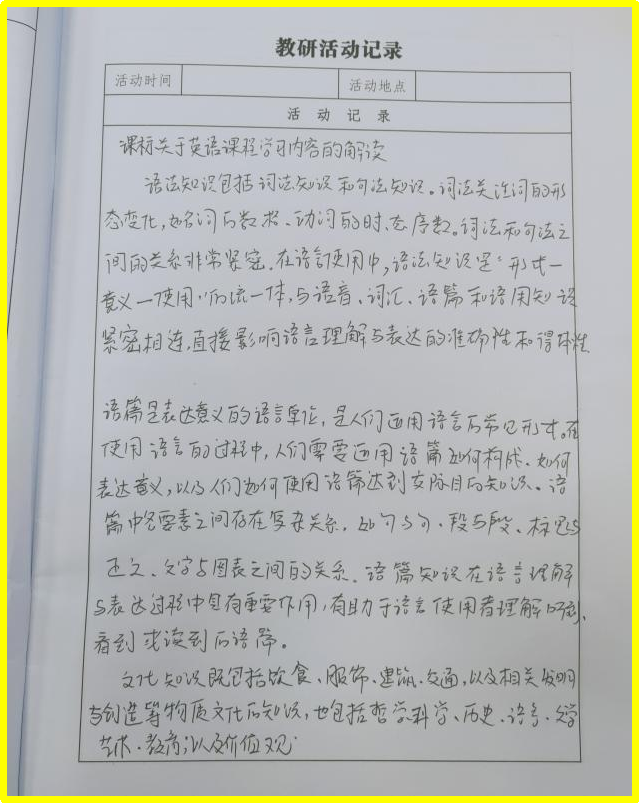 教研活动记录
活动时间 活动地点
活动记录
课标关于英语课程学习内容的解读
语法知识包括词法知识和句法知识。词法关注词的形
态变化,如名词的数、格、动词的时、态序数。词法和句法之
间的关系非常紧密。在语言使用中,语法知识是“形式一
意义一使用”的统一体,与语音、词汇、语篇和语用知识
紧密相连,直接影响语言理解与表达的准确性和得体性
语篇是表达意义的语言单位,是人们运用语言的常见形式。在
使用语言的过程中,人们需要运用语篇如何构成、如何
表达意义,以及人们如何使用语篇达到交际目的知识、语
篇中各要素之间存在复杂关系,如句与句、段与段、标题与
正文、文字与图表之间的关系、语篇知识在语言理解
与表达过程中具有重要作用,有助于语言使用者理解听到,
看到或读到的语篇。
文化知识既包括饮食、服饰、建筑、交通,以及相关发明
与创造等物质文化的知识,也包括哲学科学、历史、语言、文学
艺术、教育;以及价值观